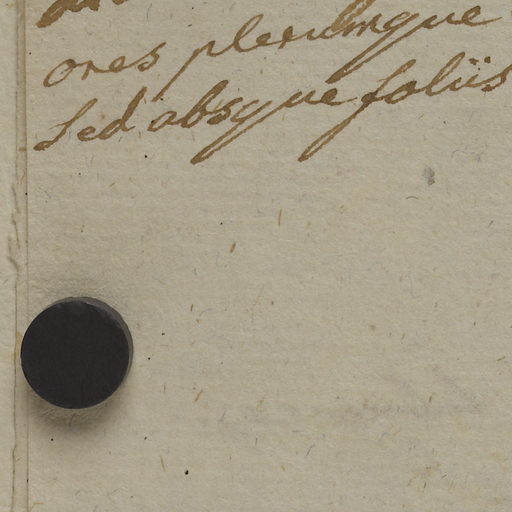 ores plerumque
Sed absque foliis